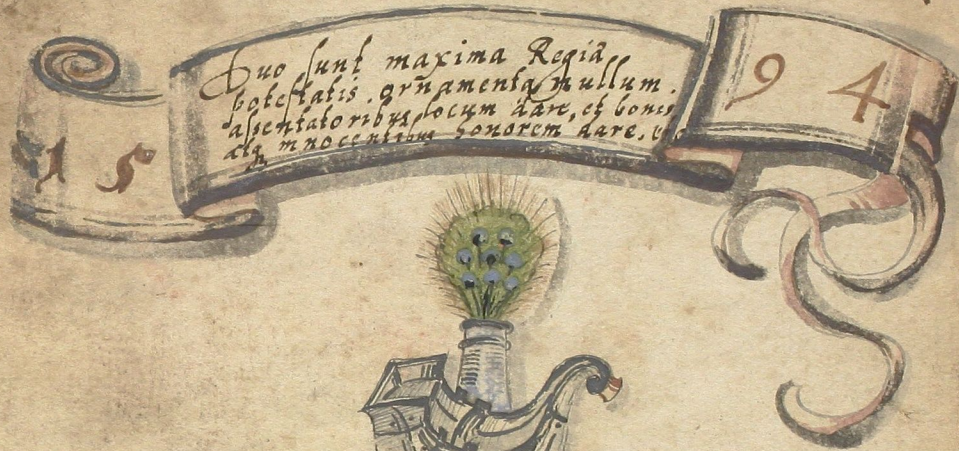 15
Duo sunt maxima Regiã
potestatis . ornamenta, nullum .
assentatoribus locum dare, et bonis
atq innocentibus honorem dare.
94